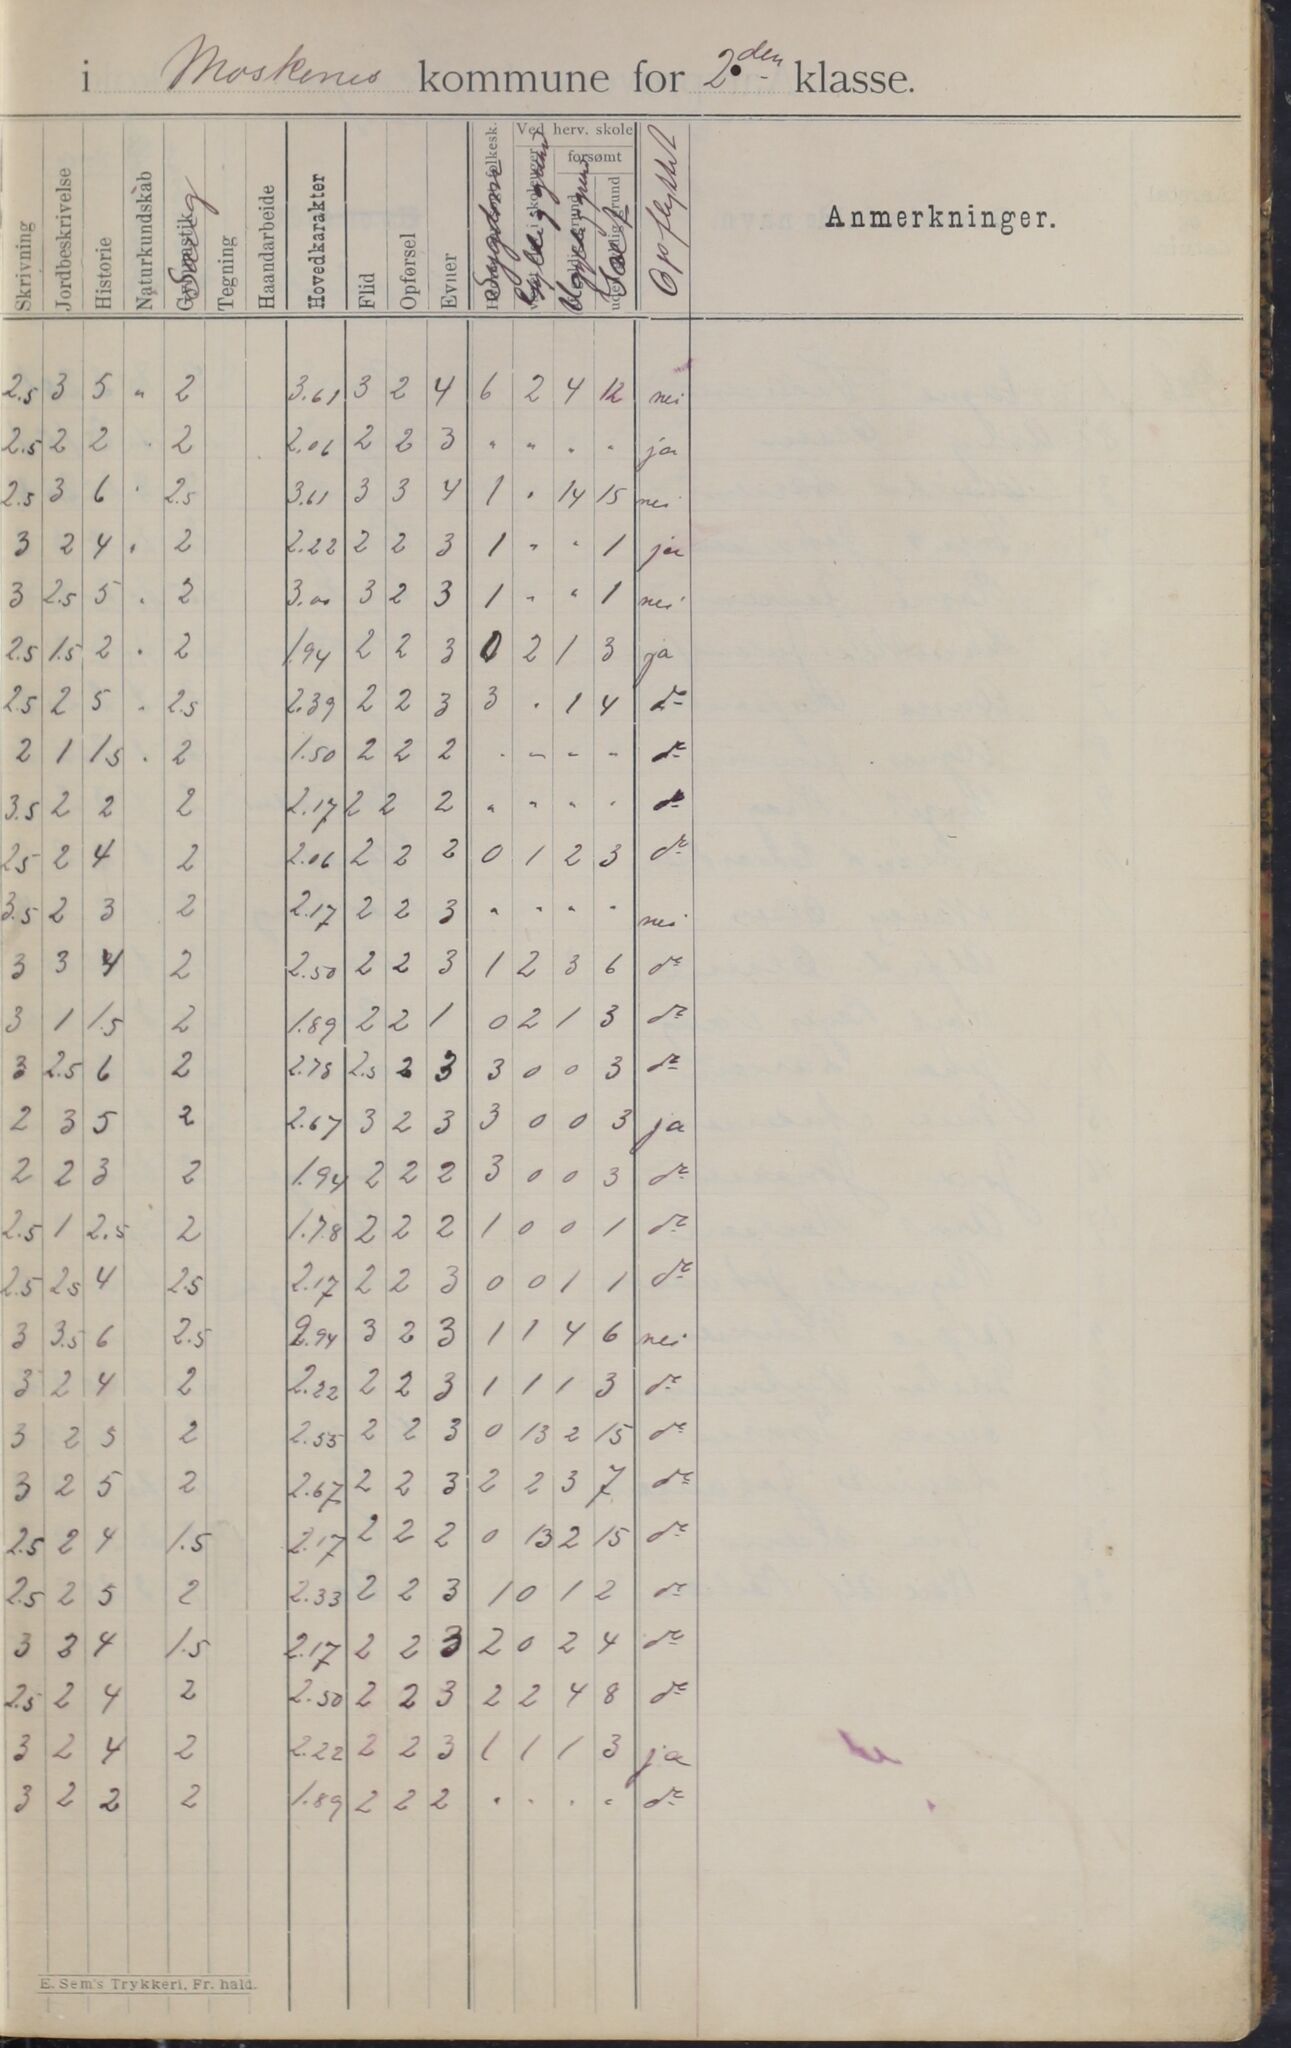 i Moskenes kommune for 2den klasse.
Skrivning Jordbeskrivelse Historie Naturkundskab Sang Tegning Haandarbeide Hovedkarakter Flid Opførsel Evner Ved herv. skole forsømt Sygdom Gyldig grund Ugyldig grund Opflyttet Anmerkninger.
2.5 3 5 " 2 3.61 3 2 4 6 2 4 12 nei
2.5 2 2 . 2 2.06 2 2 3 " " . " ja
2.5 3 6 . 2.5 3.61 3 3 4 1 . 14 15 nei
3 2 4 . 2 2.22 2 2 3 1 " " 1 ja
3 2.5 5 . 2 3.00 3 2 3 1 " " 1 nei
2.5 1.5 2 . 2 1.94 2 2 3 0 2 1 3 ja
2.5 2 5 . 2.5 2.39 2 2 3 3 . 1 4 do
2 1 1.5 . 2 1.50 2 2 2 - - - - do
3.5 2 2 2 2.17 2 2 2 " " " " do
2.5 2 4 2 2.06 2 2 2 0 1 2 3 do
3.5 2 3 2 2.17 2 2 3 " " " " nei
3 3 4 2 2.50 2 2 3 1 2 3 6 do
3 1 1.5 2 1.89 2 2 1 0 2 1 3 do
3 2.5 6 2 2.78 2.5 2 3 3 0 0 3 do
2 3 5 2 2.67 3 2 3 3 0 0 3 ja
2 2 3 2 1.94 2 2 2 3 0 0 3 do
2.5 1 2.5 2 1.78 2 2 2 1 0 0 1 do
2.5 2.5 4 2.5 2.17 2 2 3 0 0 1 1 do
3 3.5 6 2.5 2.94 3 2 3 1 1 4 6 nei
3 2 4 2 2.22 2 2 3 1 1 1 3 do
3 2 5 2 2.55 2 2 3 0 13 2 15 do
3 2 5 2 2.67 2 2 3 2 2 3 7 do
2.5 2 4 1.5 2.17 2 2 2 0 13 2 15 do
2.5 2 5 2 2.33 2 2 3 1 0 1 2 do
3 3 4 1.5 2.17 2 2 3 2 0 2 4 do
2.5 2 4 2 2.50 2 2 3 2 2 4 8 do
3 2 4 2 2.22 2 2 3 1 1 1 3 ja
3 2 2 2 1.89 2 2 2 " . . " do
E. Sem's Trykkeri, Fr.hald.